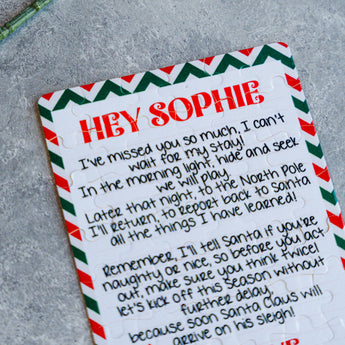 HEY SOPHIE
I've missed you so much, I can't
wait for my stay!
In the morning light, hide and seek
we will play.
Later that night, to the North Pole
I'll return, to report back to Santa
all the things I have learned!
Remember, I'll tell Santa if you're
naughty or nice, so before you act
out, make sure you think twice!
Let's kick off this season without
further delay,
because soon Santa Claus will
arrive on his sleigh!